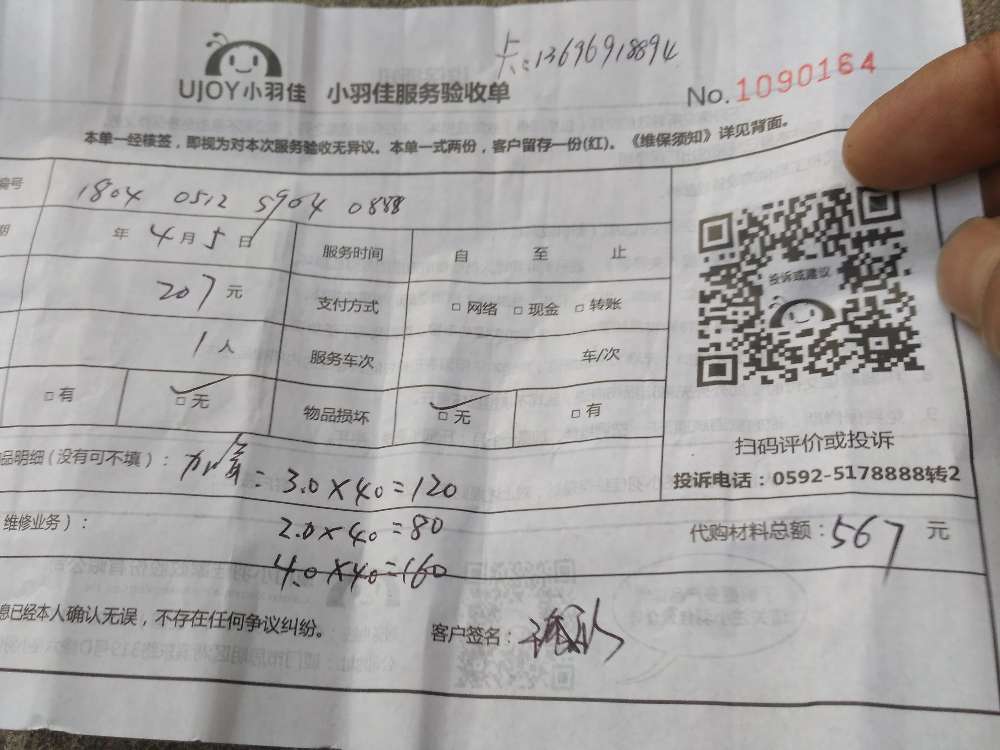 卡:13696918894
UJOY小羽佳 小羽佳服务验收单
No.1090164
本单一经核签，即视为对本次服务验收无异议。本单一式两份，客户留存一份(红)。《维保须知》详见背面。
编号 1804 0512 5904 0888
期 年 4月5日 服务时间 自 至 止
207元 支付方式 □网络 □现金 □转账
1人 服务车次 车/次
□有 □无 物品损坏 □无 □有
投诉或建议
扫码评价或投诉
投诉电话：0592-5178888转2
品明细(没有可不填)：
=3.0×40=120
2.0×40=80
维修业务)：
4.0×40=160
代购材料总额：567 元
息已经本人确认无误，不存在任何争议纠纷。 客户签名：